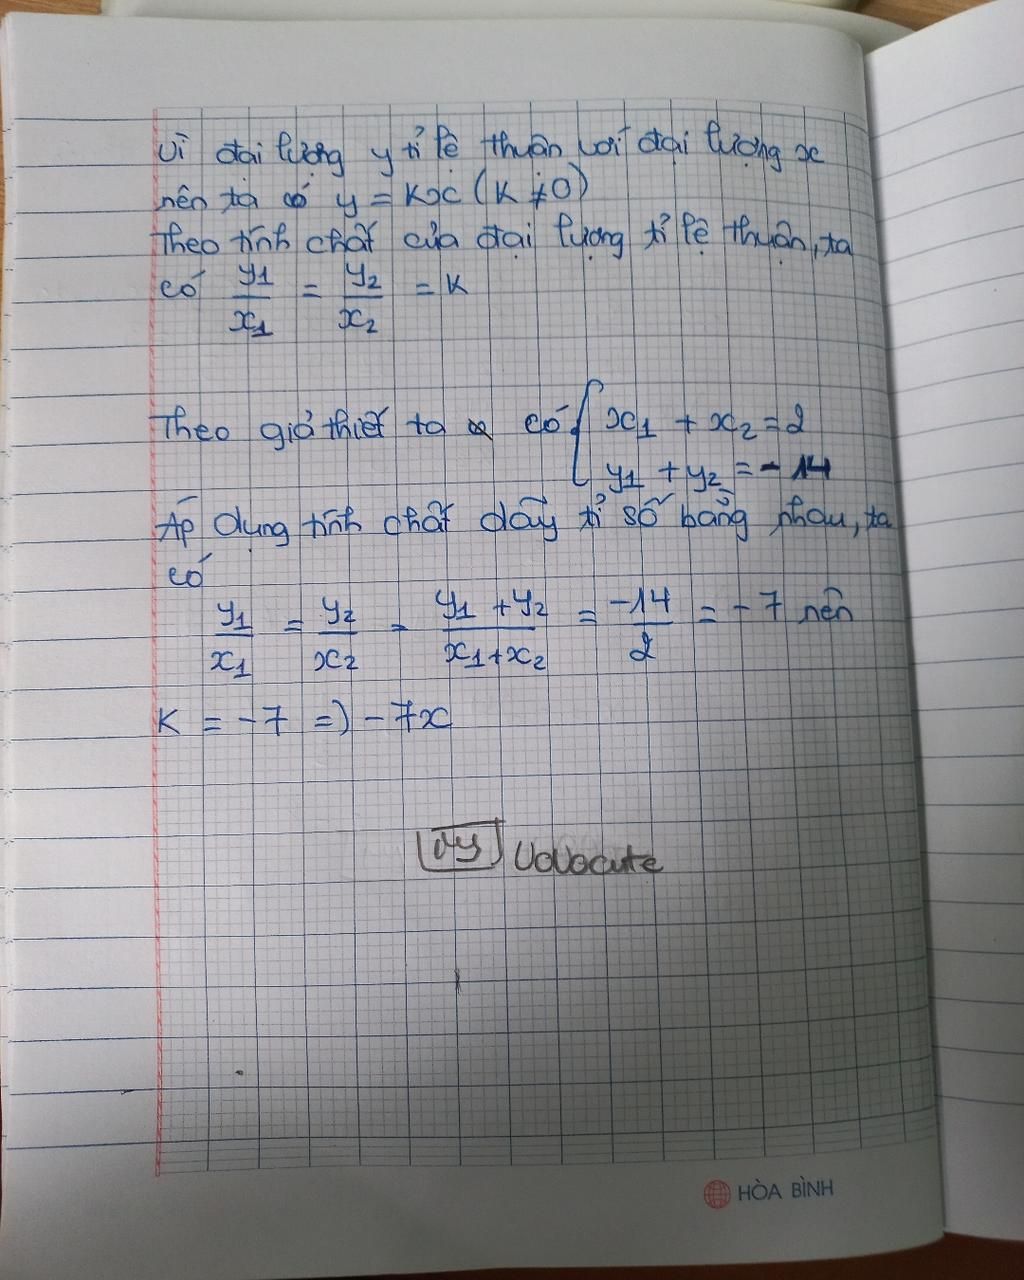 Vì đại lượng y tỉ lệ thuận với đại lượng x
nên ta có y = Kx (K ≠ 0)
Theo tính chất của đại lượng tỉ lệ thuận, ta
có y1/x1 = y2/x2 = K
Theo giả thiết ta có { x1 + x2 = 2
y1 + y2 = -14
Áp dụng tính chất dãy tỉ số bằng nhau, ta
có
y1/x1 = y2/x2 = (y1 + y2)/(x1 + x2) = -14/2 = -7 nên
K = -7 => -7x
VoVocute
HÒA BÌNH